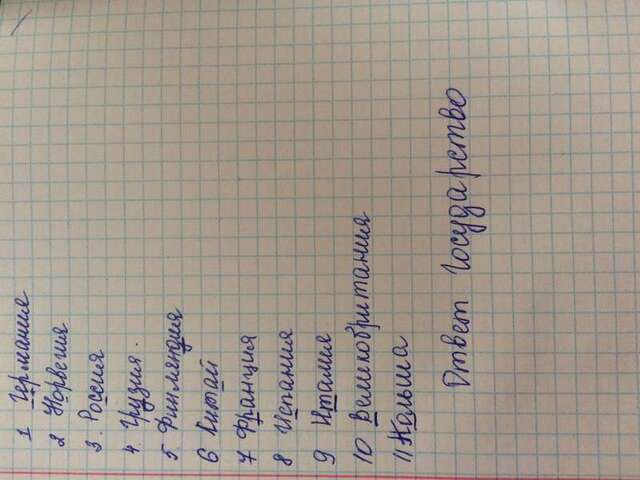 1 Германия
2 Норвегия
3. Россия
4. Грузия.
5 Финляндия
6 Китай
7 Франция
8 Испания
9 Италия
10 Великобритания
11 Польша
Ответ Государство